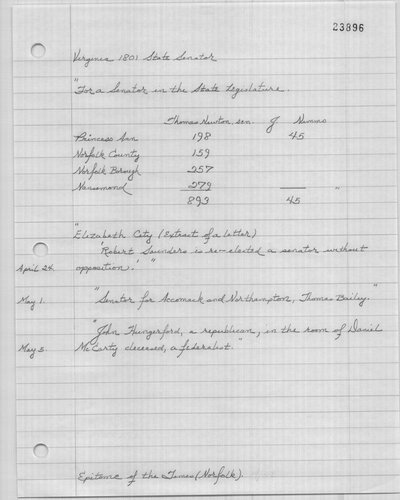 23896
Virginia 1801 State Senator
"For a Senator in the State Legislature.
Thomas Newton, sen. J Nimmo
Princess Ann 198 45
Norfolk County 159
Norfolk Borough 257
Nansemond 279 "
893 45
"Elizabeth City (Extract of a letter)
'Robert Saunders is re-elected a senator without
April 24. opposition.' "
May 1. "Senator for Accomack and Northampton, Thomas Bailey."
"John Hungerford, a republican, in the room of Daniel
May 5. McCarty deceased, a federalist."
Epitome of the Times (Norfolk).